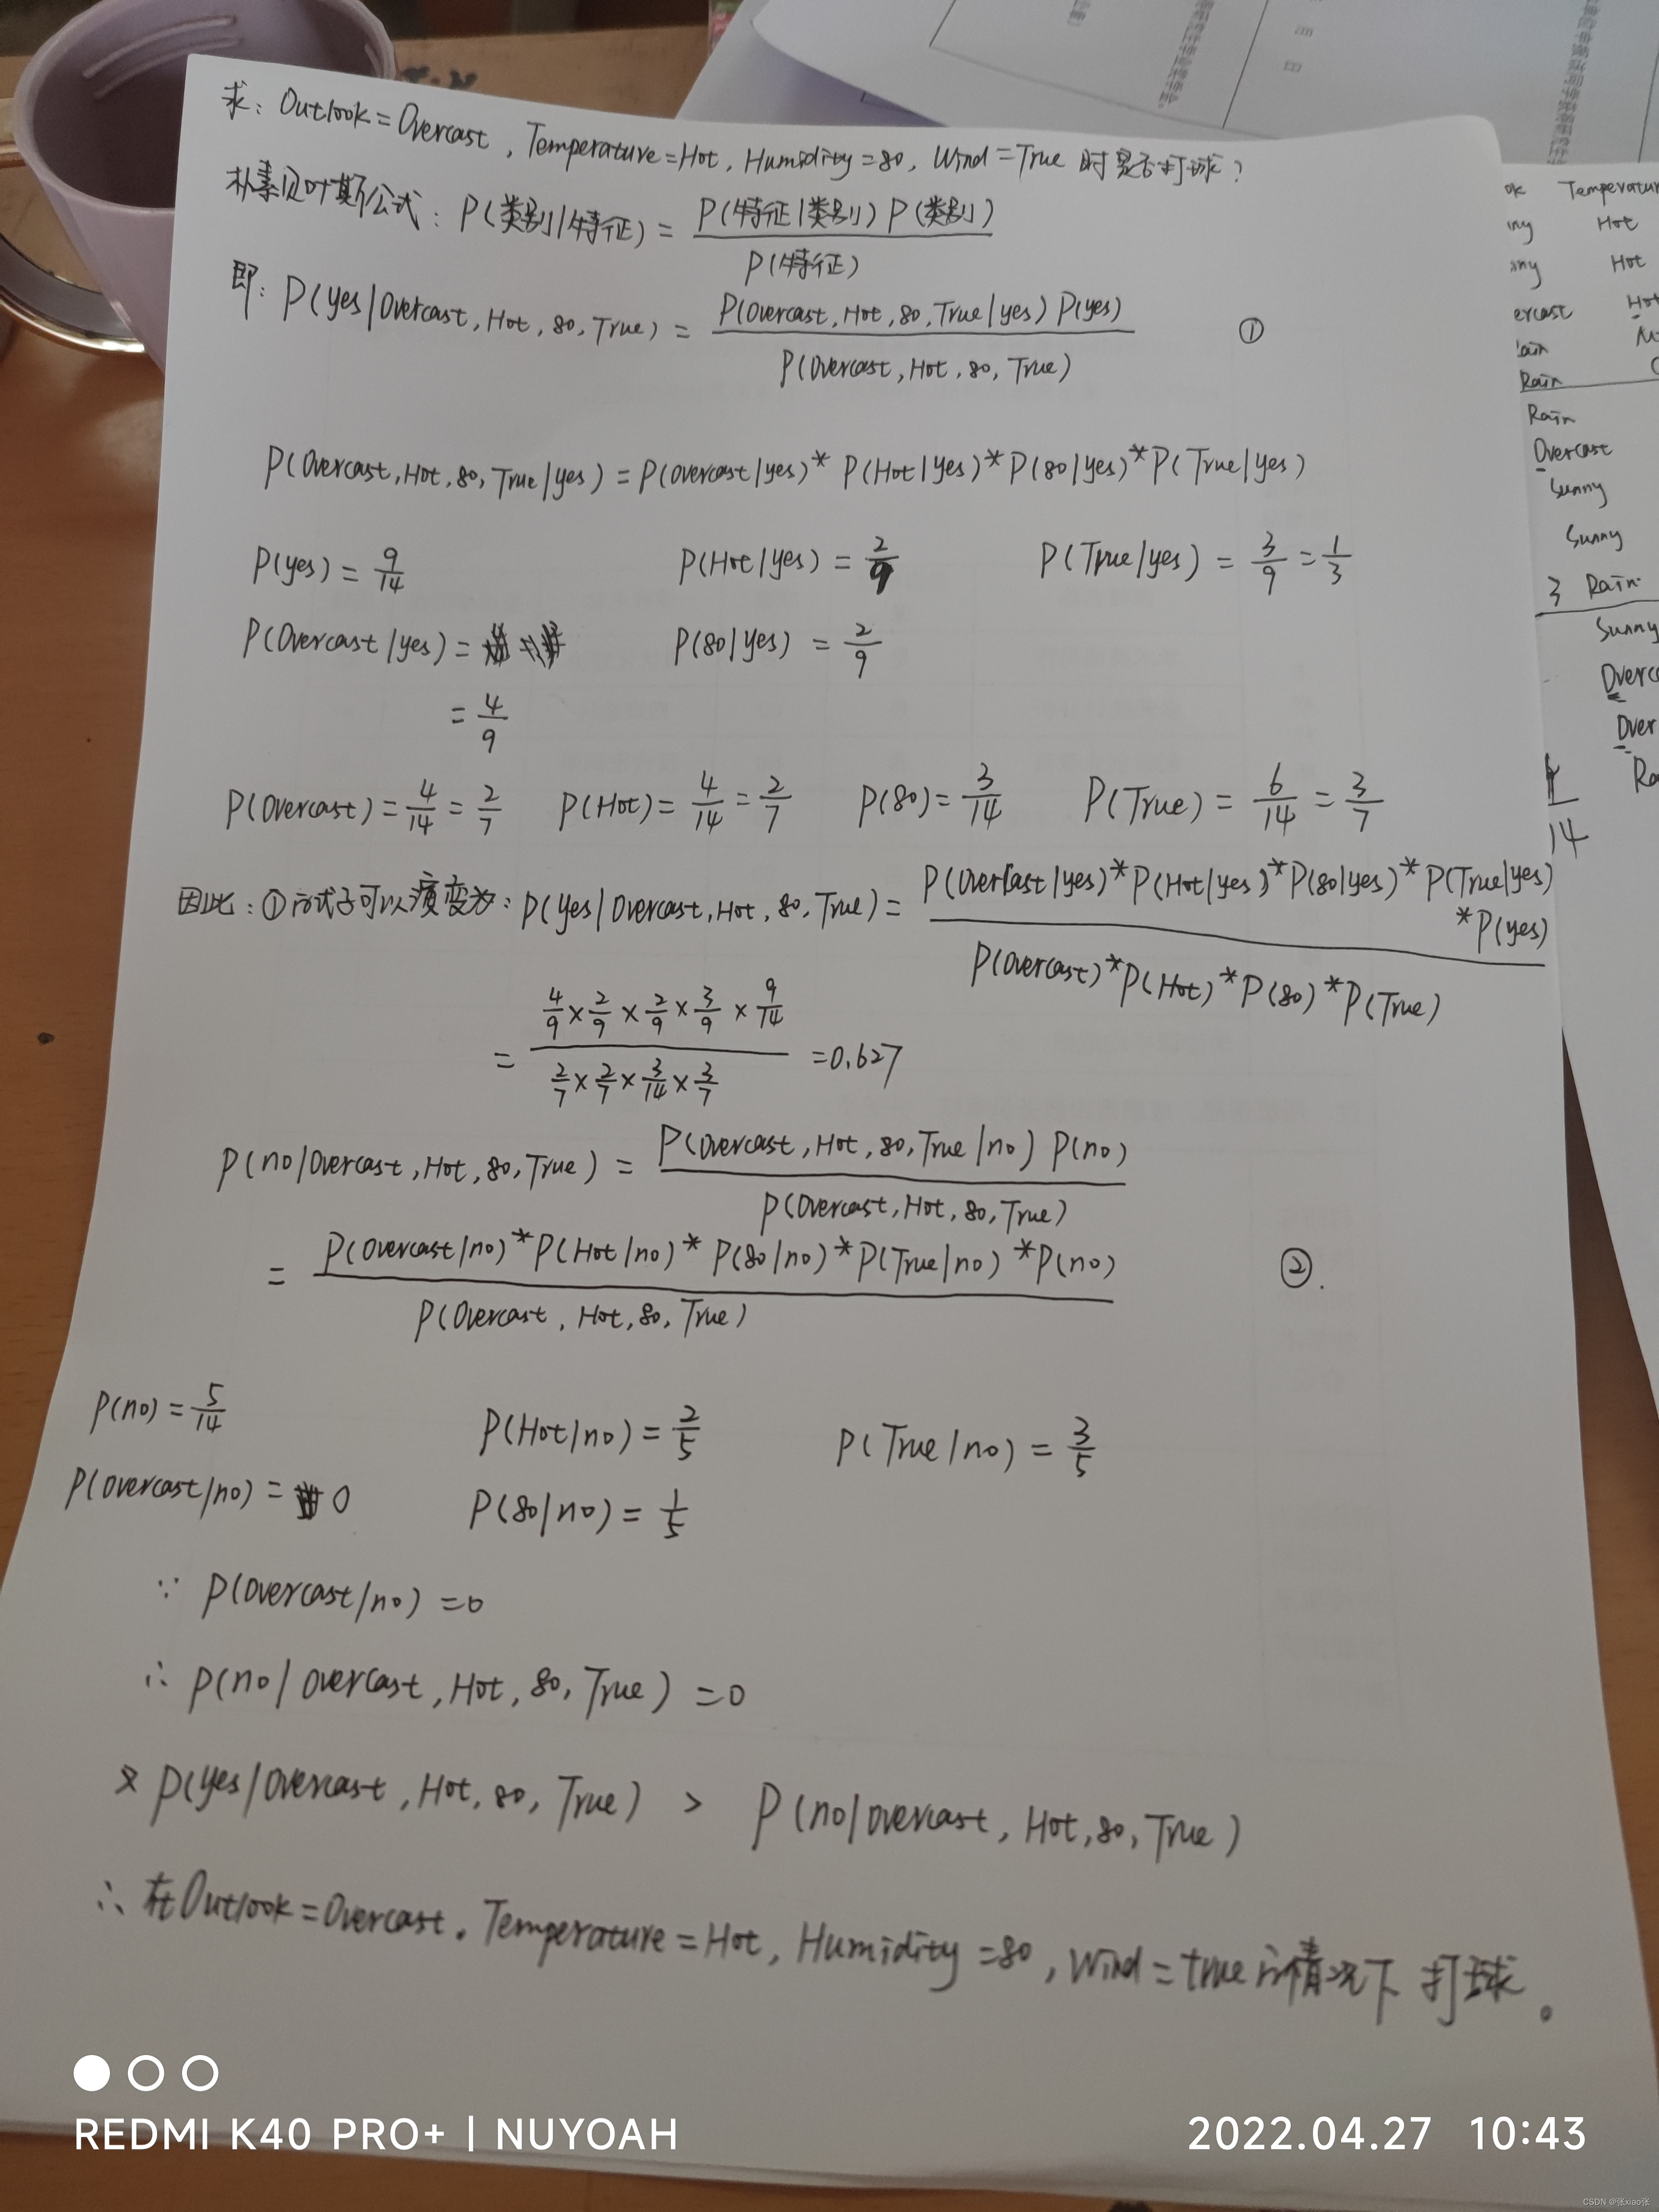 求: Outlook = Overcast, Temperature = Hot, Humidity = 80, Wind = True 时是否打球?
朴素贝叶斯公式: P(类别|特征) = P(特征|类别) P(类别) / P(特征)
即: P(yes|Overcast, Hot, 80, True) = P(Overcast, Hot, 80, True|yes) P(yes) / P(Overcast, Hot, 80, True) ①
P(Overcast, Hot, 80, True|yes) = P(overcast|yes) * P(Hot|yes) * P(80|yes) * P(True|yes)
P(yes) = 9/14 P(Hot|yes) = 2/9 P(True|yes) = 3/9 = 1/3
P(Overcast|yes) = P(80|yes) = 2/9
= 4/9
P(Overcast) = 4/14 = 2/7 P(Hot) = 4/14 = 2/7 P(80) = 3/14 P(True) = 6/14 = 3/7
因此: ①式子可以演变为: P(yes|Overcast, Hot, 80, True) = P(Overcast|yes) * P(Hot|yes) * P(80|yes) * P(True|yes) * P(yes) / P(overcast) * P(Hot) * P(80) * P(True)
= 4/9 × 2/9 × 2/9 × 3/9 × 9/14 / 2/7 × 2/7 × 3/14 × 3/7 = 0.627
P(no|Overcast, Hot, 80, True) = P(Overcast, Hot, 80, True|no) P(no) / P(Overcast, Hot, 80, True)
= P(Overcast|no) * P(Hot|no) * P(80|no) * P(True|no) * P(no) / P(Overcast, Hot, 80, True) ②.
P(no) = 5/14 P(Hot|no) = 2/5 P(True|no) = 3/5
P(overcast|no) = 0 P(80|no) = 1/5
∵ P(overcast|no) = 0
∴ P(no|overcast, Hot, 80, True) = 0
又 P(yes|overcast, Hot, 80, True) > P(no|overcast, Hot, 80, True)
∴ 在Outlook = Overcast. Temperature = Hot, Humidity = 80, Wind = true 的情况下 打球。
Temperatur
Hot
Hot
ercast Hot
Rain
Rain
Overcast
Sunny
Sunny
3 Rain
Sunny
Overc
Over
Ra
14
REDMI K40 PRO+ | NUYOAH
2022.04.27 10:43
CSDN @张xiao张